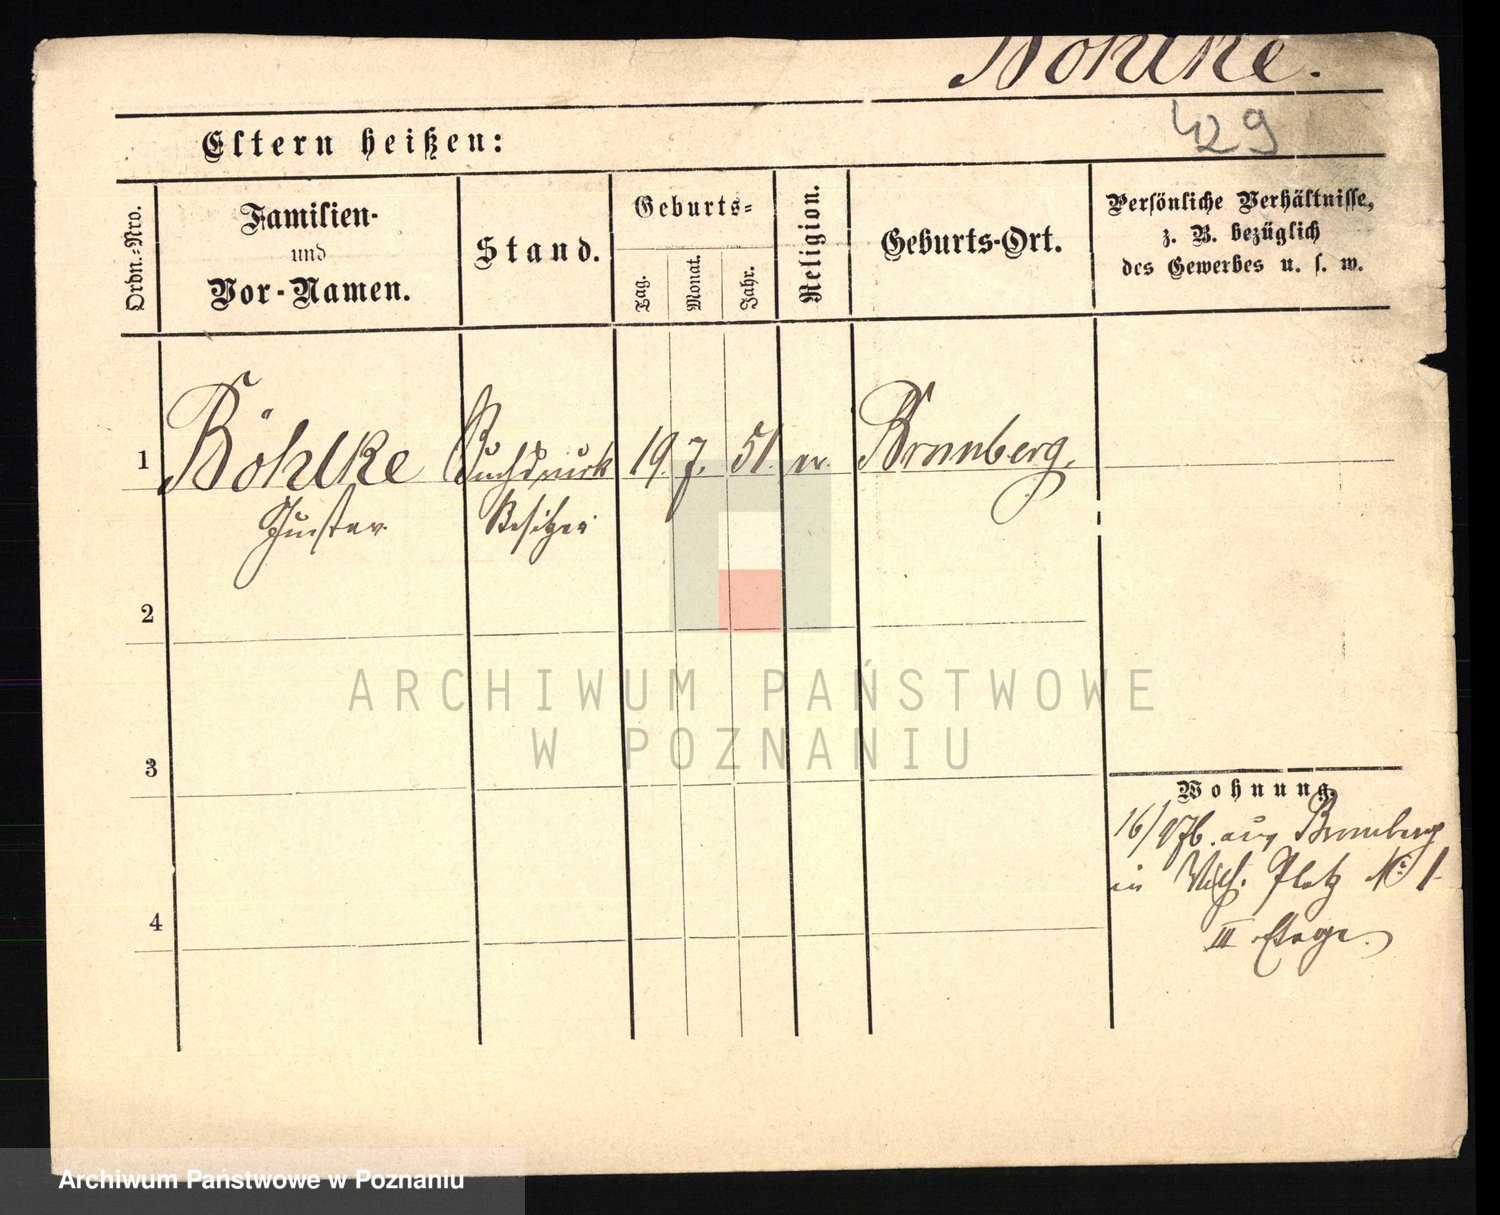 Böhlke.
429
Eltern heißen:
Ordn.-Nro.
Familien-
und
Vor-Namen.
Stand.
Geburts-
Tag.
Monat.
Jahr.
Religion.
Geburts-Ort.
Persönliche Verhältnisse,
z. B. bezüglich
des Gewerbes u. s. w.
1 Böhlke Buchdruck 19. 7. 51. ev. Bromberg.
Gustav Besitzer
2
3
Wohnung.
16/9 76. aus Bromberg
in Wilh. Platz No 1
III Etage.
4
ARCHIWUM PAŃSTWOWE
W POZNANIU
Archiwum Państwowe w Poznaniu